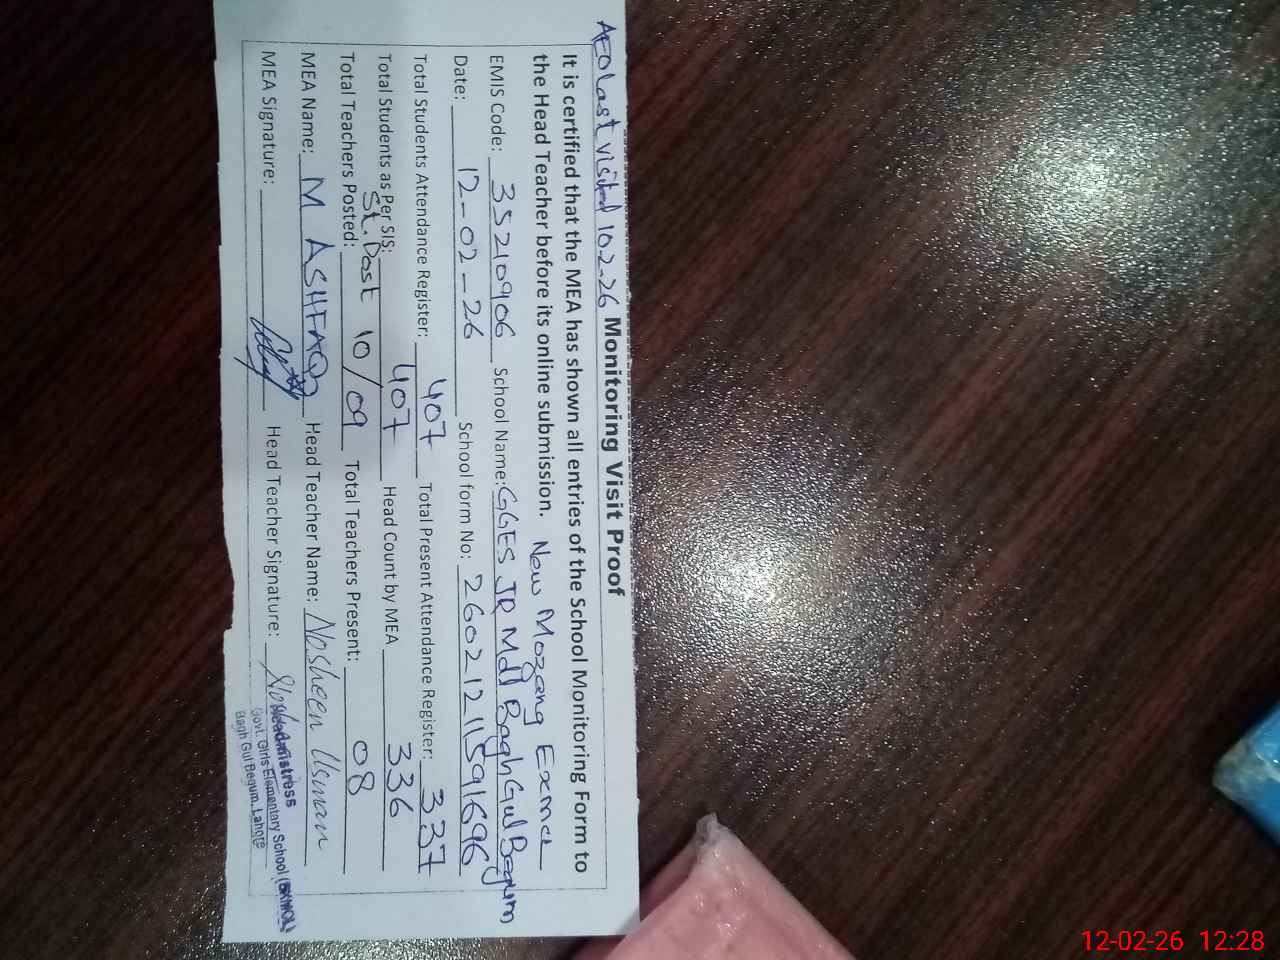 AEO Last visited 10.2.26 Monitoring Visit Proof
It is certified that the MEA has shown all entries of the School Monitoring Form to
the Head Teacher before its online submission. New Mozang Exmct
EMIS Code: 35210906 School Name: GGES JR Mdl Bagh Gul Begum
Date: 12-02-26 School form No: 26021211591696
Total Students Attendance Register: 407 Total Present Attendance Register: 337
Total Students as Per SIS: 407 Head Count by MEA 336
St. Post
Total Teachers Posted: 10/09 Total Teachers Present: 08
MEA Name: M ASHFAQ Head Teacher Name: Nosheen Usman
MEA Signature: Head Teacher Signature:
Headmistress
Govt. Girls Elementary School
Bagh Gul Begum, Lahore
12-02-26 12:28